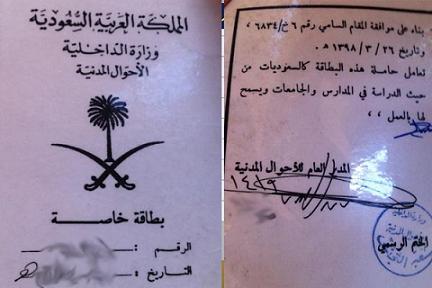 المملكة العربية السعودية
وزارة الداخلية
الأحوال المدنية
بطاقة خاصة
الرقم :
التاريخ :
بناء على موافقة المقام السامي رقم ٦خ/٦٨٣٤
وتاريخ ٢٦/٣/١٣٩٨ هـ .
تعامل حاملة هذه البطاقة كالسعوديات من
حيث الدراسة في المدارس والجامعات ويسمح
لها بالعمل ،،
المدير العام للأحوال المدنية
الختم الرسمي